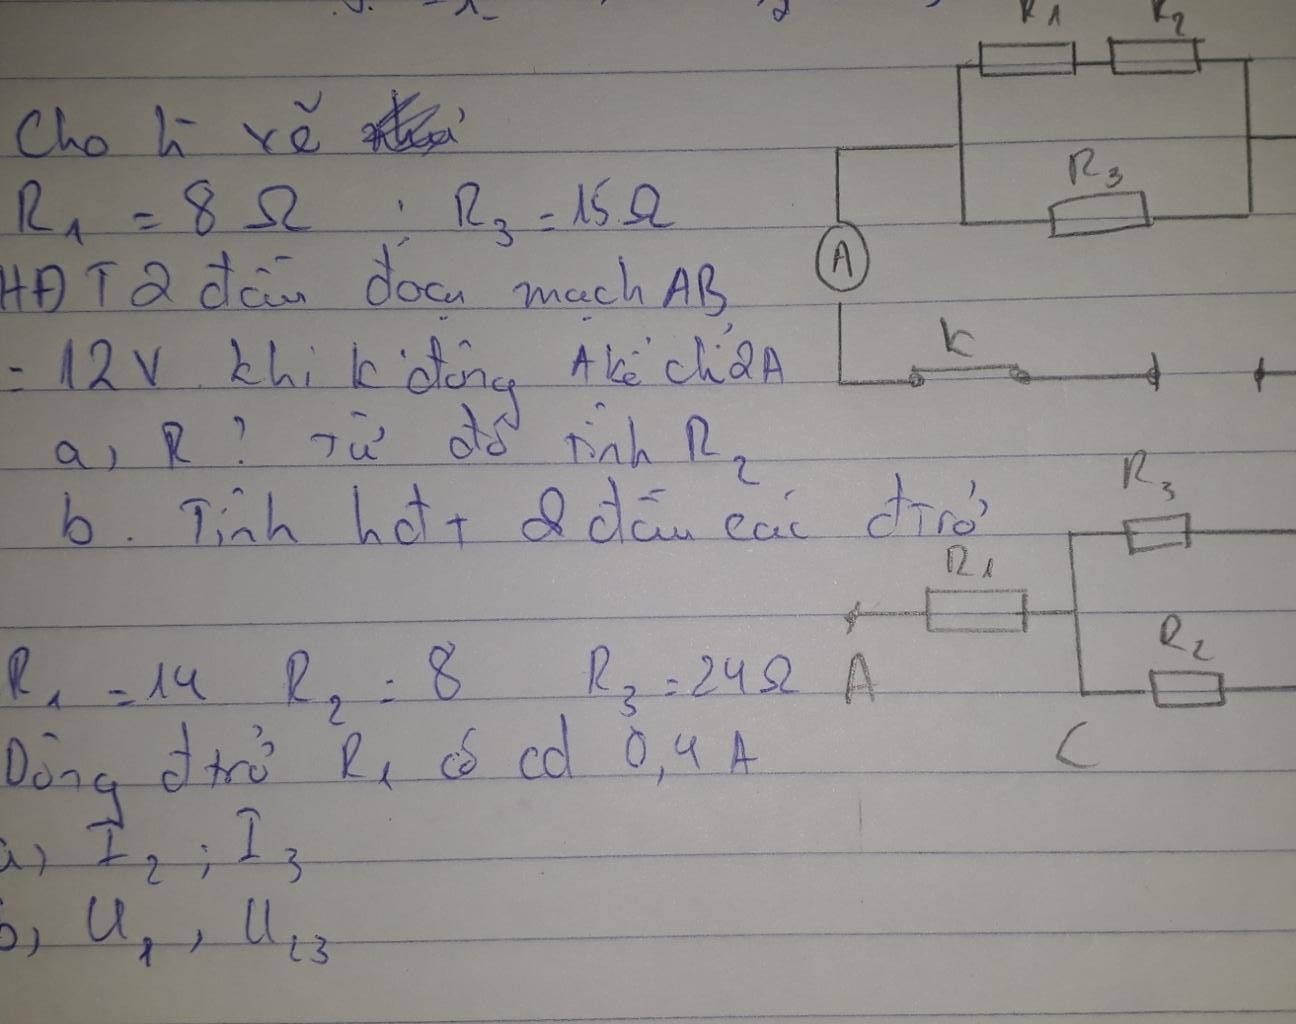 R1 R2
Cho h vẽ
R1 = 8 Ω ; R3 = 15 Ω
R3
HĐT 2 đầu đoạn mạch AB
A
= 12V khi k đóng A kế chỉ 2A
K
a, R ? Từ đó tính R2
b. Tính hđt 2 đầu các đ trở
R3
R1
R2
R1 = 14 R2 = 8 R3 = 24 Ω
A
C
Dòng đ trở R1 có cd 0,4 A
a) I2 ; I3
b, U1 , U23